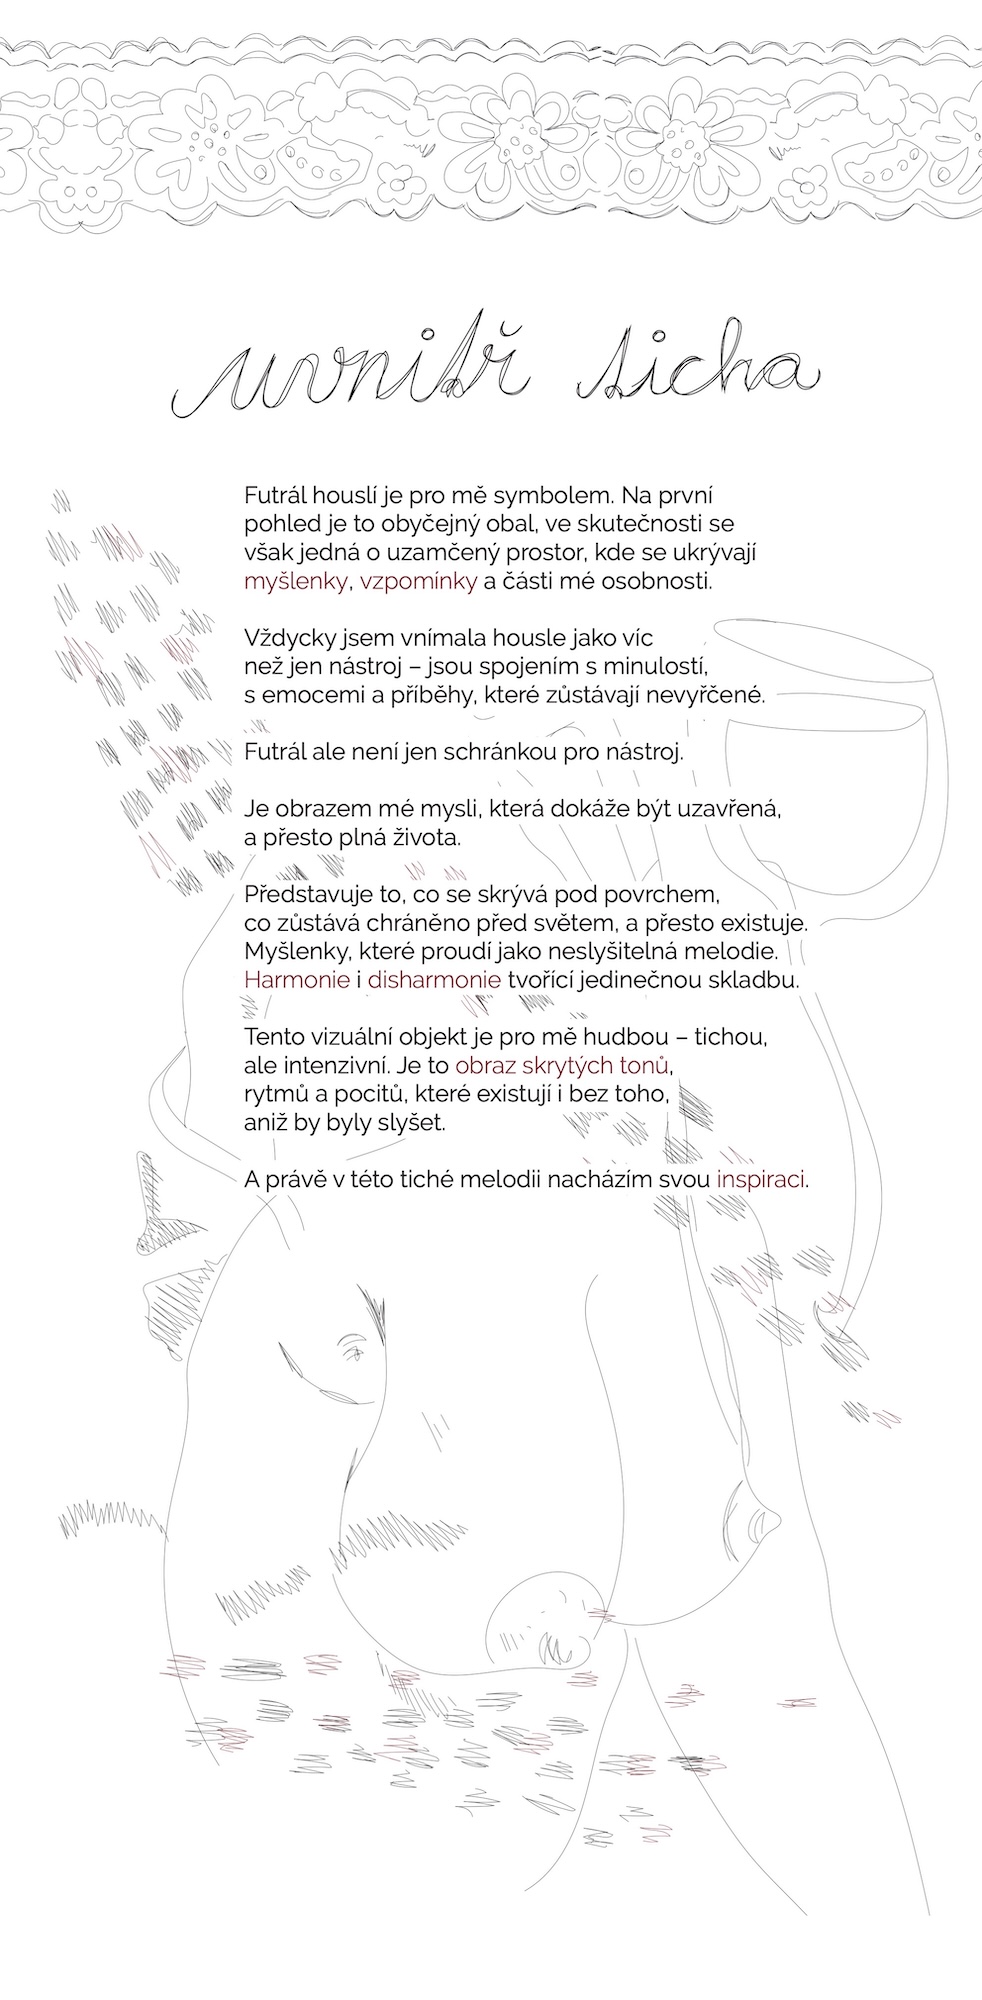 uvnitř ticha
Futrál houslí je pro mě symbolem. Na první
pohled je to obyčejný obal, ve skutečnosti se
však jedná o uzamčený prostor, kde se ukrývají
myšlenky, vzpomínky a části mé osobnosti.
Vždycky jsem vnímala housle jako víc
než jen nástroj – jsou spojením s minulostí,
s emocemi a příběhy, které zůstávají nevyřčené.
Futrál ale není jen schránkou pro nástroj.
Je obrazem mé mysli, která dokáže být uzavřená,
a přesto plná života.
Představuje to, co se skrývá pod povrchem,
co zůstává chráněno před světem, a přesto existuje.
Myšlenky, které proudí jako neslyšitelná melodie.
Harmonie i disharmonie tvořící jedinečnou skladbu.
Tento vizuální objekt je pro mě hudbou – tichou,
ale intenzivní. Je to obraz skrytých tonů,
rytmů a pocitů, které existují i bez toho,
aniž by byly slyšet.
A právě v této tiché melodii nacházím svou inspiraci.